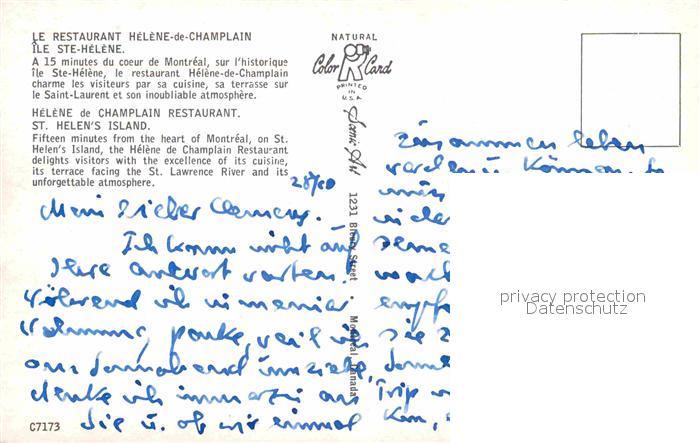 LE RESTAURANT HÉLÈNE-de-CHAMPLAIN
ÎLE STE-HÉLÈNE.
A 15 minutes du coeur de Montréal, sur l'historique
Île Ste-Hélène, le restaurant Hélène-de-Champlain
charme les visiteurs par sa cuisine, sa terrasse sur
le Saint-Laurent et son inoubliable atmosphère.
HÉLÈNE de CHAMPLAIN RESTAURANT.
ST. HELEN'S ISLAND.
Fifteen minutes from the heart of Montréal, on St.
Helen's Island, the Hélène de Champlain Restaurant
delights visitors with the excellence of its cuisine,
its terrace facing the St. Lawrence River and its
unforgettable atmosphere.
NATURAL
Color Card
PRINTED
IN
U.S.A.
Scenic Art
1231 Bleury Street • Montreal Canada
Mein lieber
Ich kann nicht auf
Ihre antwort warten!
Während ich in meiner
Wohnung packe, weil ich
am Sonnabend umziehe,
denke ich immerzu an
Sie u. ob wir einmal
zusammen leben
werden können.
in der
Trip
privacy protection
Datenschutz
C7173